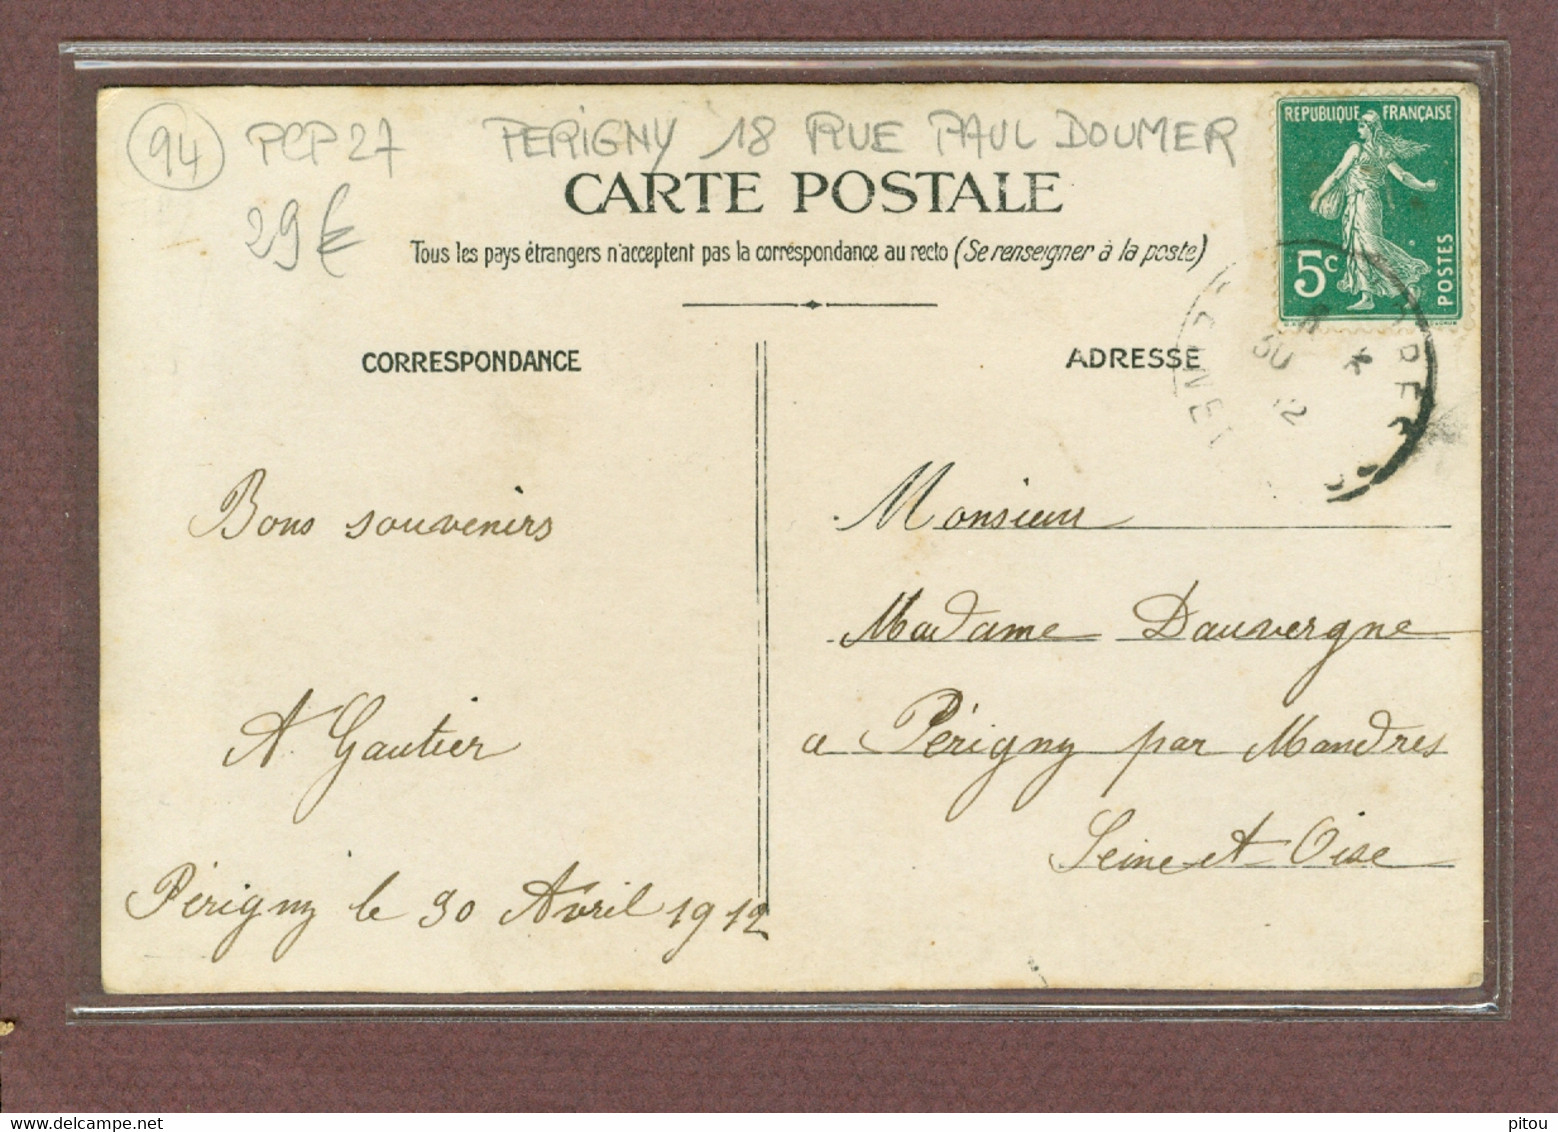 94 PCP27 PERIGNY 18 RUE PAUL DOUMER
29€
RÉPUBLIQUE FRANÇAISE
5c
POSTES
CARTE POSTALE
Tous les pays étrangers n'acceptent pas la correspondance au recto (Se renseigner à la poste)
CORRESPONDANCE
ADRESSE
30
12
Bons souvenirs
A. Gautier
Périgny le 30 Avril 1912
Monsieur
Madame Dauvergne
a Périgny par Mandres
Seine et Oise
pitou